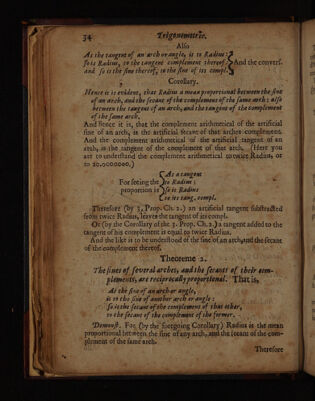 34 Trigonometrie.
Also
As the tangent of an arch or angle, is to Radius:
so is Radius, to the tangent complement thereof. And the convers.
and so is the sine thereof, to the sine of its compl.
Corollary.
Hence it is evident, that Radius a mean proportional between the sine
of an arch, and the secant of the complement of the same arch; also
between the tangent of an arch, and the tangent of the complement
of the same arch.
And hence it is, that the complement arithmetical of the artificial
sine of an arch, is the artificial secant of that arches complement.
And the complement arithmetical of the artificial tangent of an
arch, is the tangent of the complement of that arch. (Here you
are to understand the complement arithmetical to twice Radius, or
to 20.0000000.)
As a tangent
For seeing the to Radius:
proportion is so is Radius
to its tang. compl.
Therefore (by 3. Prop. Ch. 2.) an artificial tangent substracted
from twice Radius, leaves the tangent of its compl.
Or (by the Corollary of the 3. Prop. Ch. 2.) a tangent added to the
tangent of his complement is equal to twice Radius.
And the like is to be understood of the sine of an arch, and the secant
of the complement thereof.
Theoreme 2.
The sines of several arches, and the secants of their com-
plements, are reciprocally proportional. That is,
As the sine of an arch or angle,
is to the sine of another arch or angle:
So is the secant of the complement of that other,
to the secant of the complement of the former.
Demonst. For (by the foregoing Corollary) Radius is the mean
proportional between the sine of any arch, and the secant of the com-
plement of the same arch.
Therefore